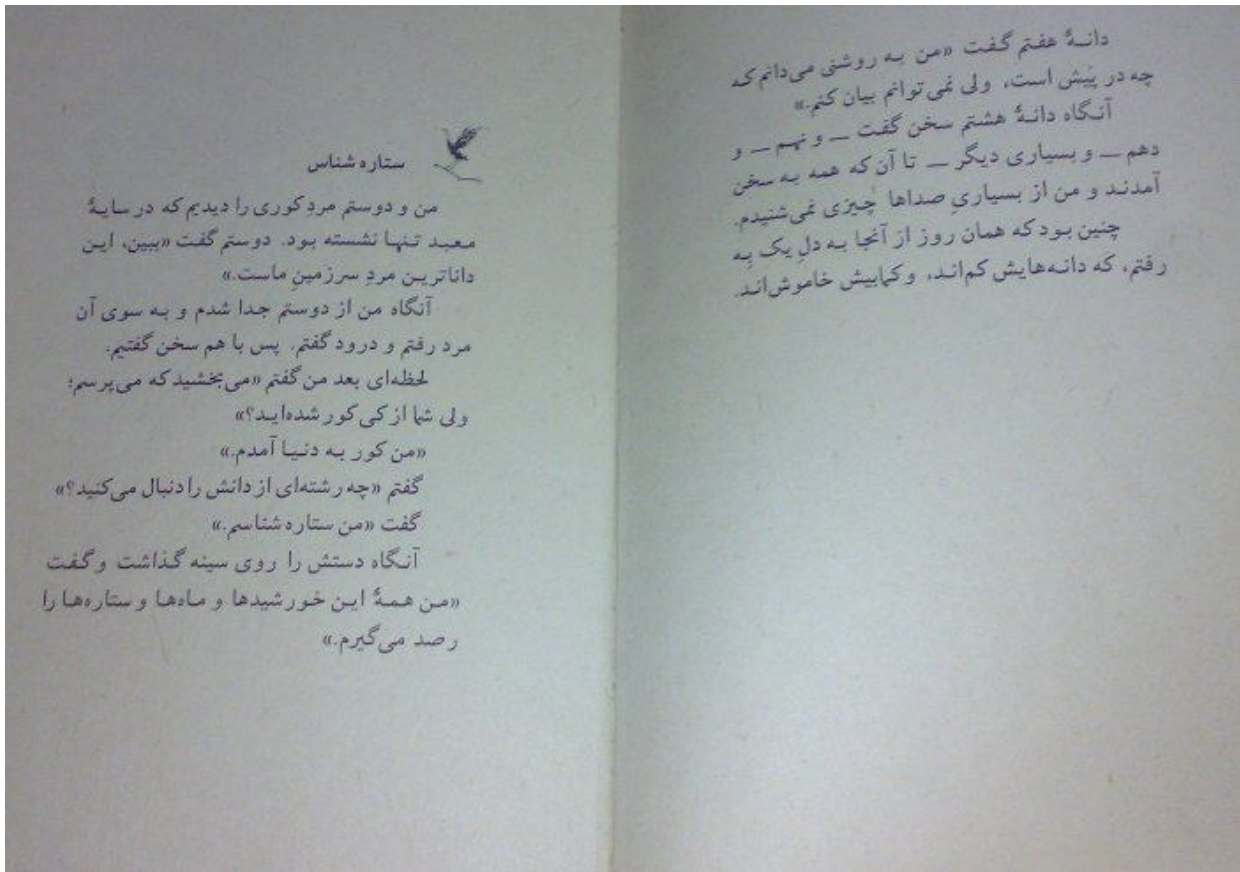 دانـهٔ هفتم گـفت «من بـه روشنی می‌دانم‌کـه
چه در پیش است، ولی نمی‌توانم بیان کنم.»
آنـگاه دانـهٔ هشتم سخن گفت ــ و نهم ــ و
دهم ــ و بسیاری دیگر ــ تا آن‌که همه بـه سخن
آمدنـد و من از بسیاریِ صداها چیزی نمی‌شنیدم.
چنین بود که همان روز از آنجا بـه دلِ یک بِه
رفتم، که دانـه‌هایش کم‌انـد، و کمابیش خاموش‌انـد.
ستاره‌شناس
من و دوستم مردِ کوری را دیدیم که در سایـهٔ
معبـد تـنهـا نشسته بـود. دوستم گفت «ببین، ایـن
داناتریـن مردِ سرزمینِ ماست.»
آنگاه من از دوستم جدا شدم و بـه سوی آن
مرد رفتم و درود گفتم. پس با هم سخن گفتیم.
لحظه‌ای بعد من گفتم «می‌بخشید که می‌پرسم؛
ولی شما از کی کور شده‌ایـد؟»
«من کور بـه دنـیـا آمدم.»
گفتم «چه رشته‌ای از دانش را دنبال می‌کنید؟»
گفت «من ستاره‌شناسم.»
آنـگاه دستش را روی سینه گـذاشت و گـفت
«مـن همـهٔ ایـن خورشیدهـا و مـاه‌هـا و ستاره‌هـا را
رصد می‌گیرم.»